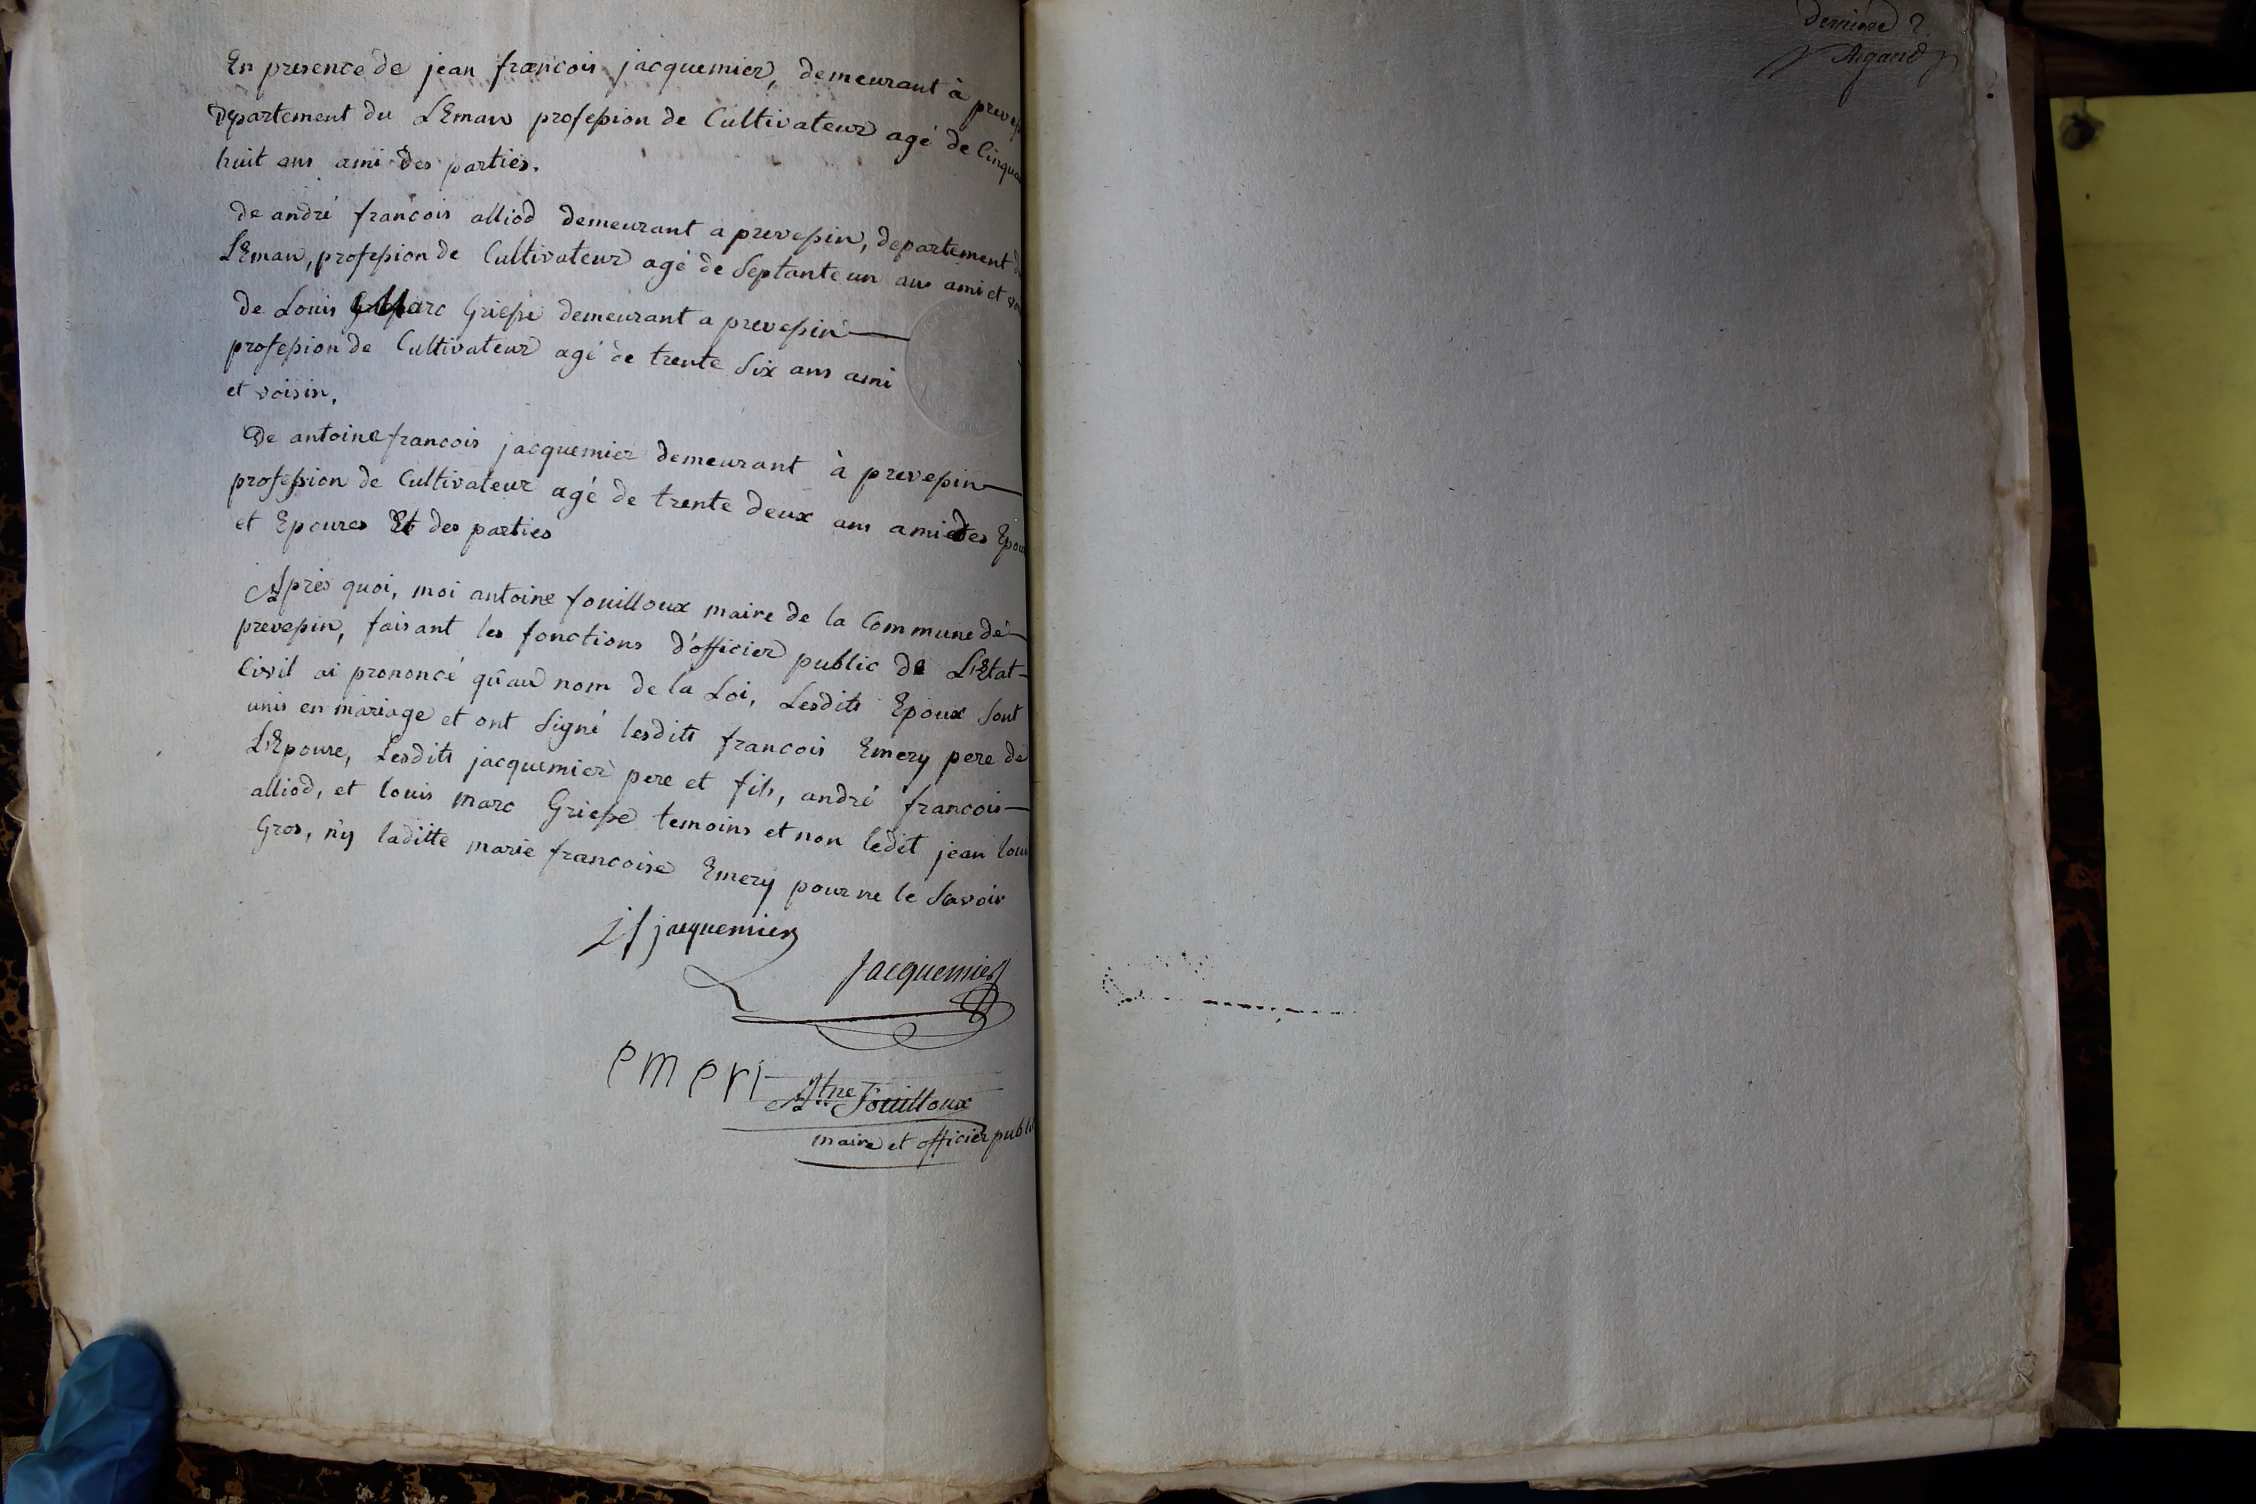 En presence de jean francois jacquemier, demeurant à preves
Departement du LEman profession de Cultivateur agé de Cinqua
huit ans ami des parties.
de andré francois alliod demeurant a prevessin, departement d
LEman, profession de Cultivateur agé de Septante un ans ami et voi
de Louis Marc Griesse demeurant a prevessin
profession de Cultivateur agé de trente Six ans ami
et voisin.
De antoine francois jacquemier demeurant à prevessin
profession de Cultivateur agé de trente deux ans ami des Epou
et Epouses Et des parties
Après quoi, moi antoine fouilloux maire de la Commune de
prevessin, faisant les fonctions d'officier public de L'Etat
Civil ai prononcé qu'au nom de la Loi, Lesdits Epoux sont
unis en mariage et ont Signé lesdits francois Emery pere de
L'Epouse, Lesdits jacquemier pere et fils, andré francois
alliod, et louis marc Griesse temoins et non ledit jean loui
Gros, n'y laditte marie francoise Emery pour ne le Savoir
j f jacquemier
Jacquemier
emeri
Atne Fouilloux
maire et officier publi
derniere
Argand